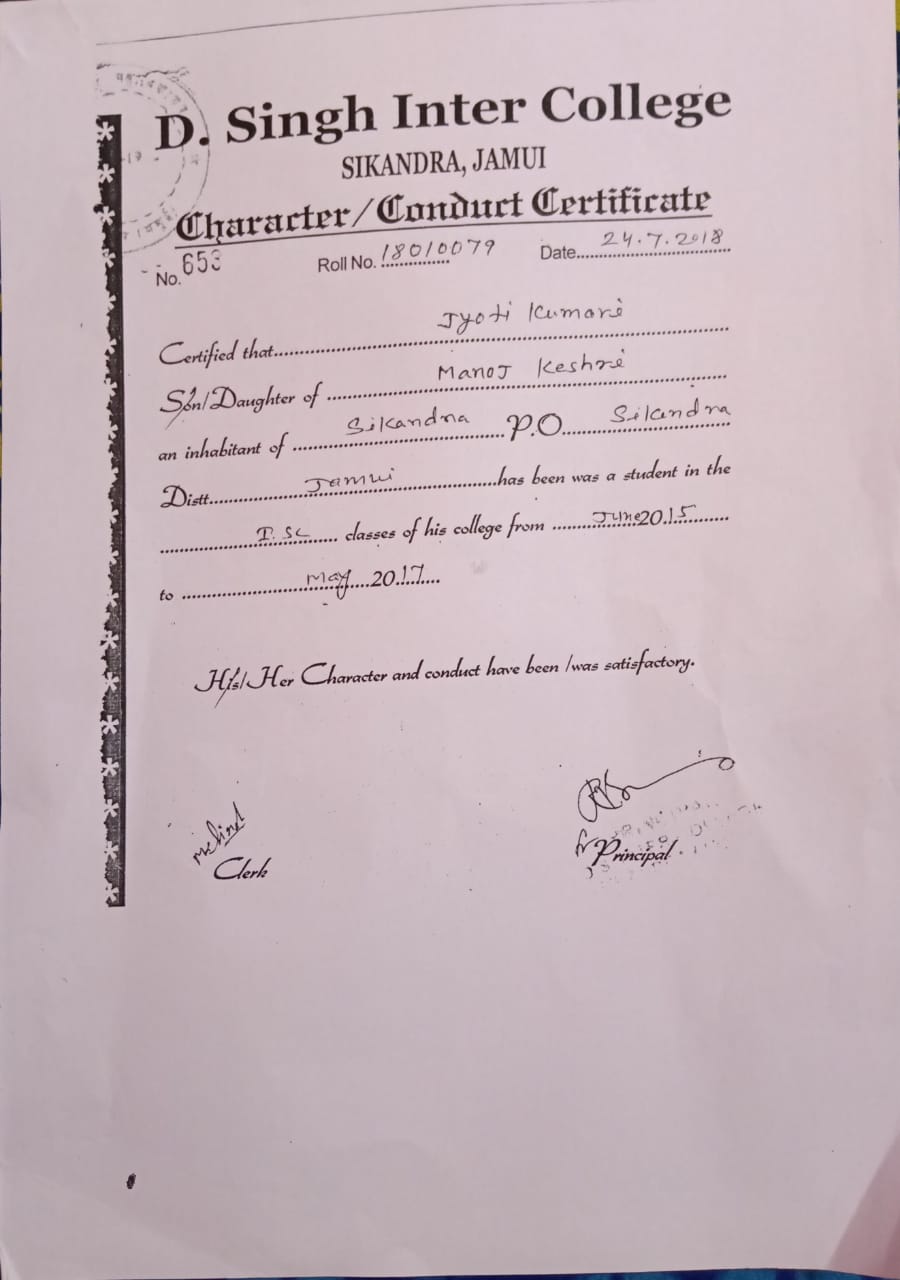 D. Singh Inter College
SIKANDRA, JAMUI
Character/Conduct Certificate
No. 653 Roll No. 18010079 Date 24.7.2018
Certified that Jyoti Kumari
Son/Daughter of Manoj Keshri
an inhabitant of Sikandra P.O. Sikandra
Distt. Jamui has been was a student in the
I.Sc classes of his college from June 2015
to May 2017
His/Her Character and conduct have been /was satisfactory.
Clerk
for Principal